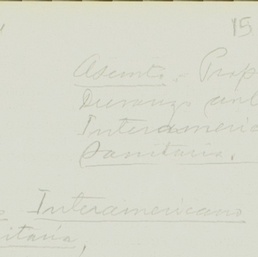 15
Asunto. Prop
Durango ant
Interameric
Sanitaria.
Interamericano
itaria,